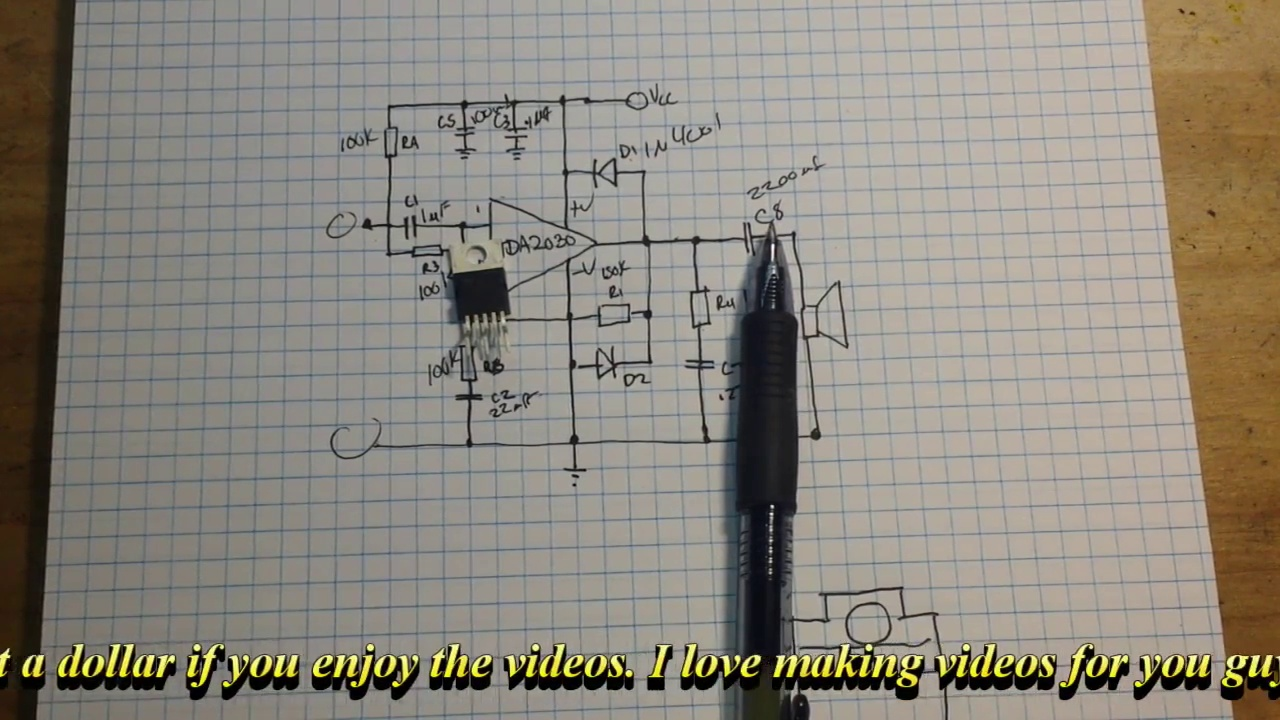 Vcc
C5
100uF
C3
.1uF
100K
R4
D1
1N4001
2200uF
C8
C1
1uF
1
+V
DA2030
R3
100
-V
150K
R1
R4
100K
D2
C2
22uF
t a dollar if you enjoy the videos. I love making videos for you guy